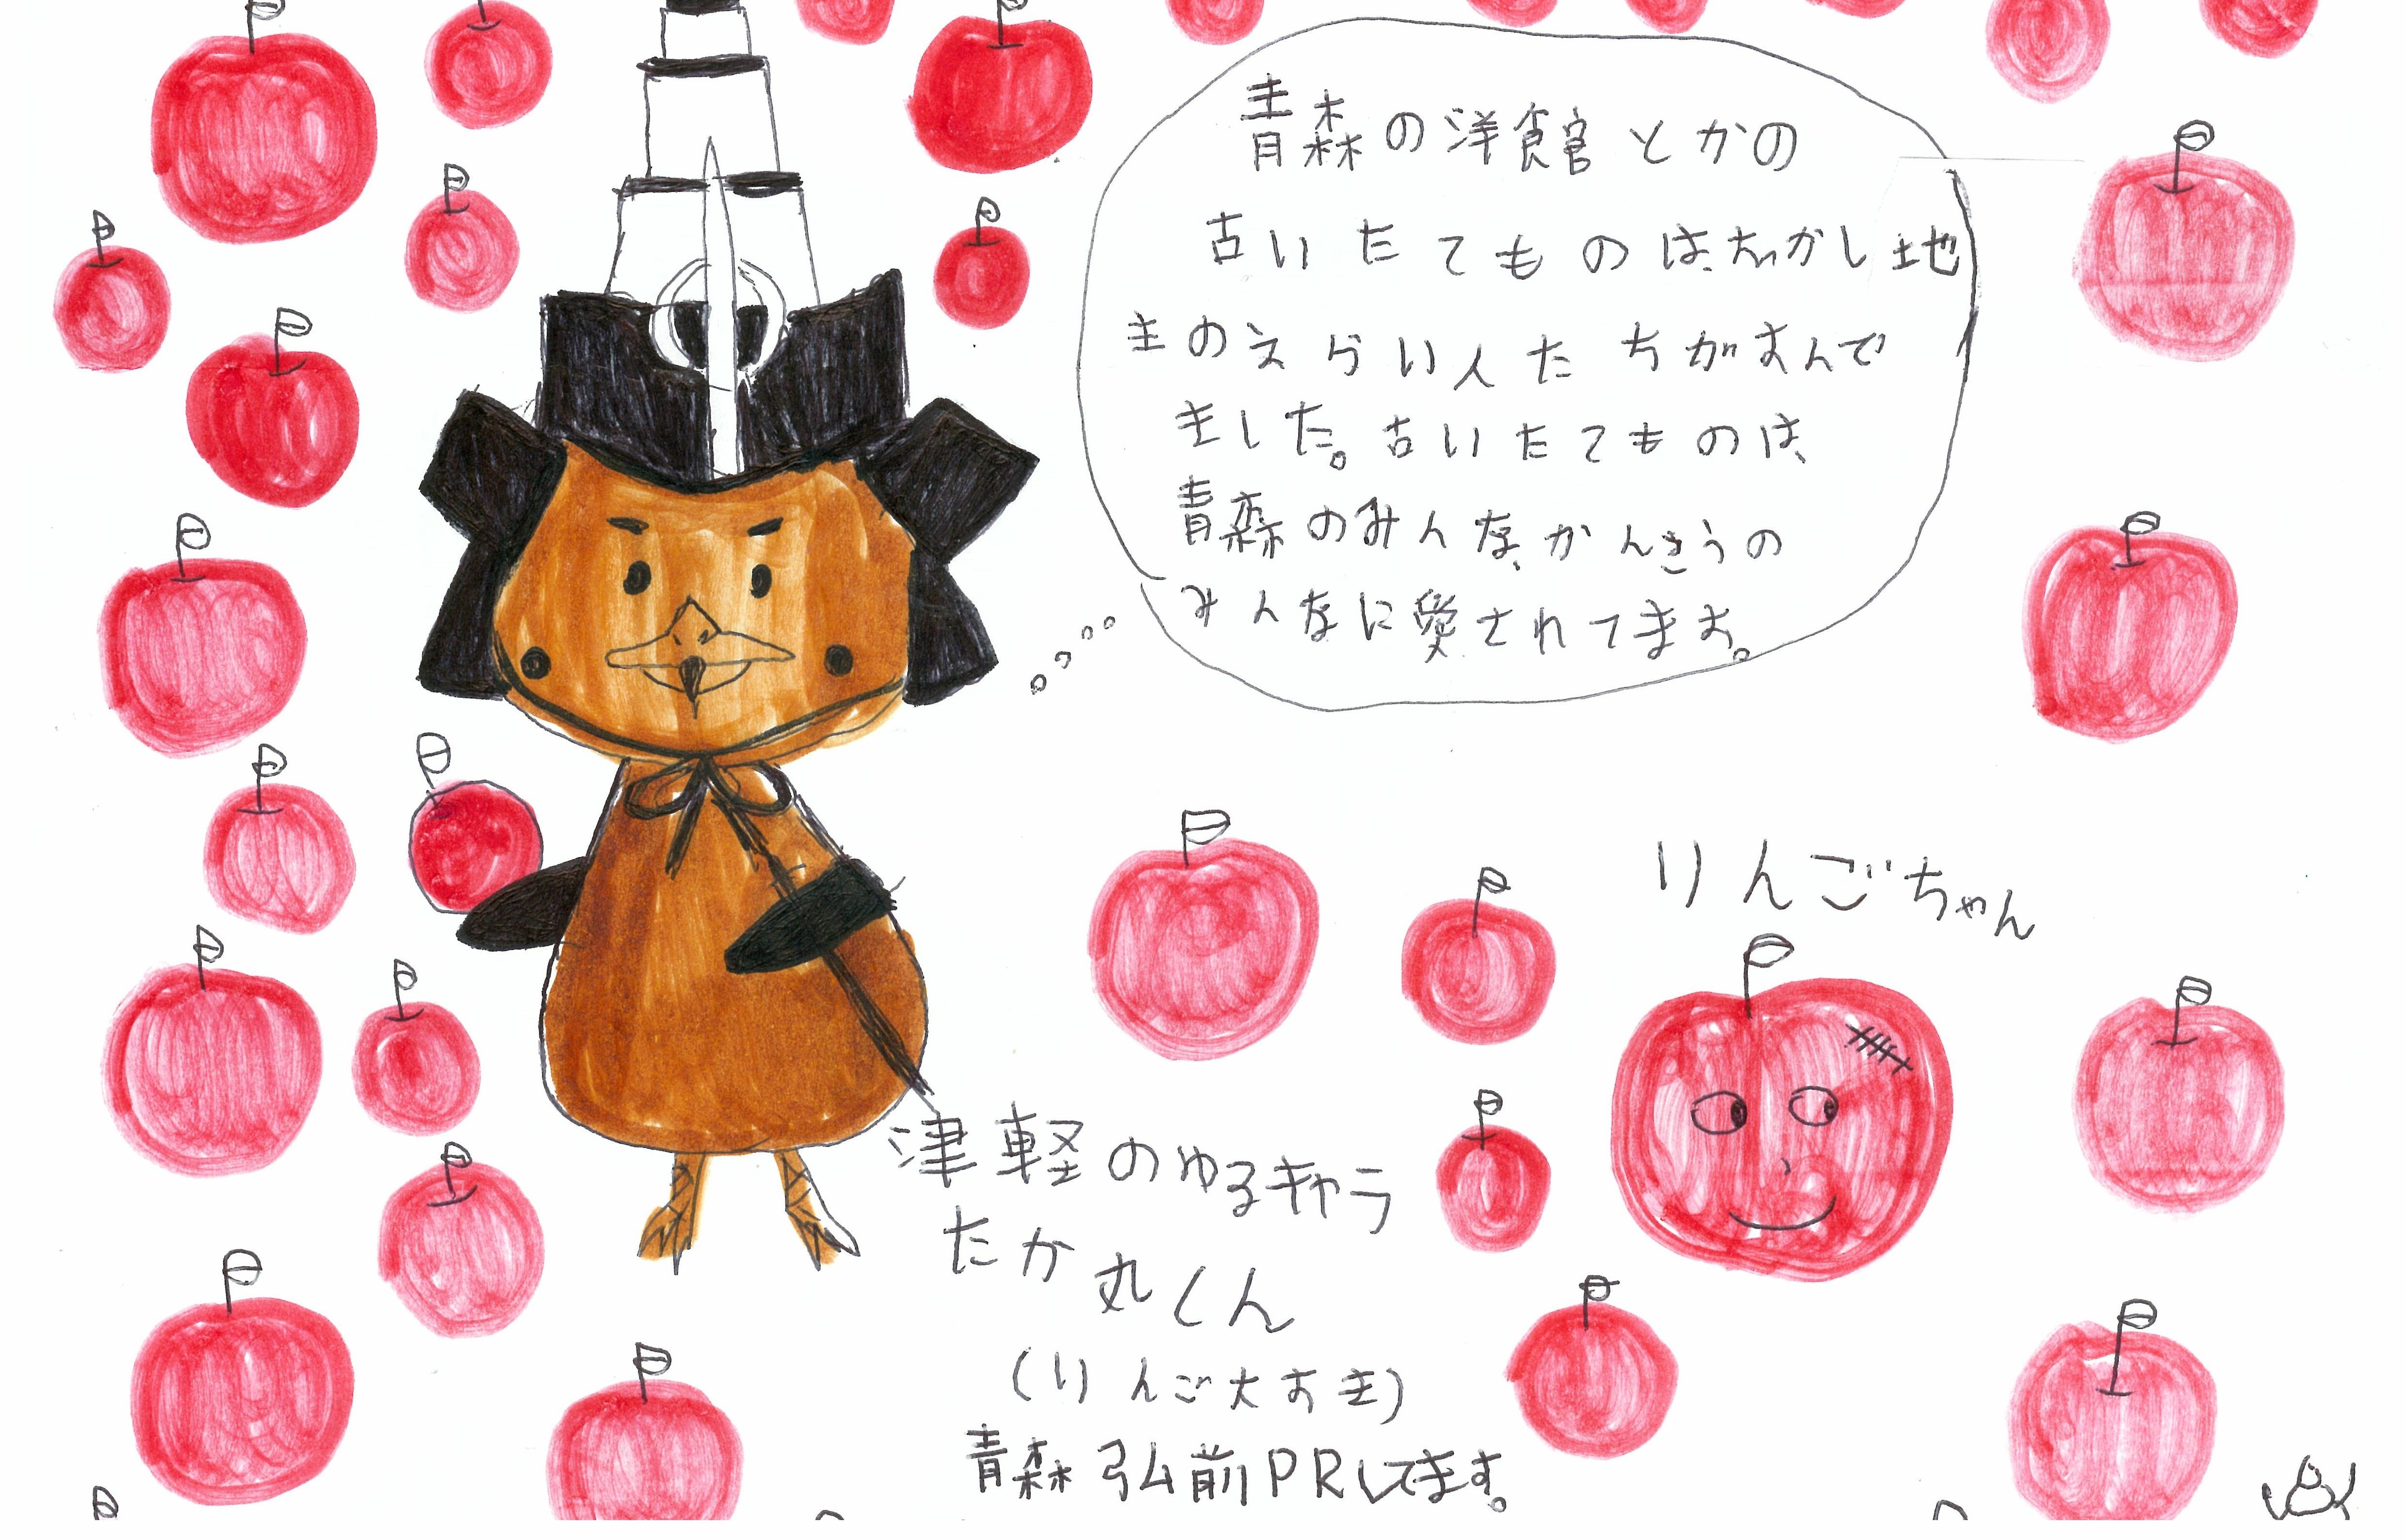 青森の洋館とかの
古いたてものは、むかし地
主のえらい人たちがすんで
ました。古いたてものは、
青森のみんな、かんきゃくの
みんなに愛されてます。
りんごちゃん
津軽のゆるキャラ
たか丸くん
(りんご大すき)
青森弘前PRしてます。